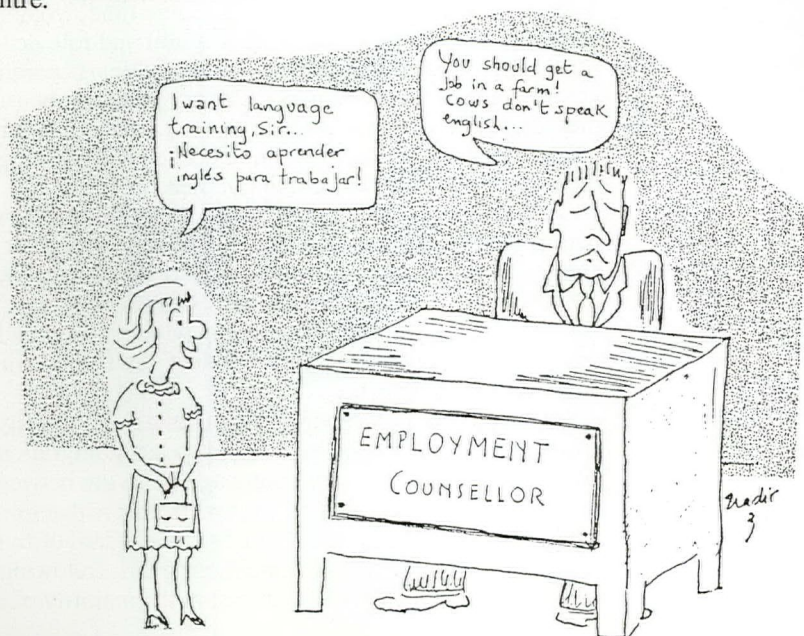 ntre.
I want language
training, Sir...
¡Necesito aprender
inglés para trabajar!
You should get a
Job in a farm!
Cows don't speak
english...
EMPLOYMENT
COUNSELLOR